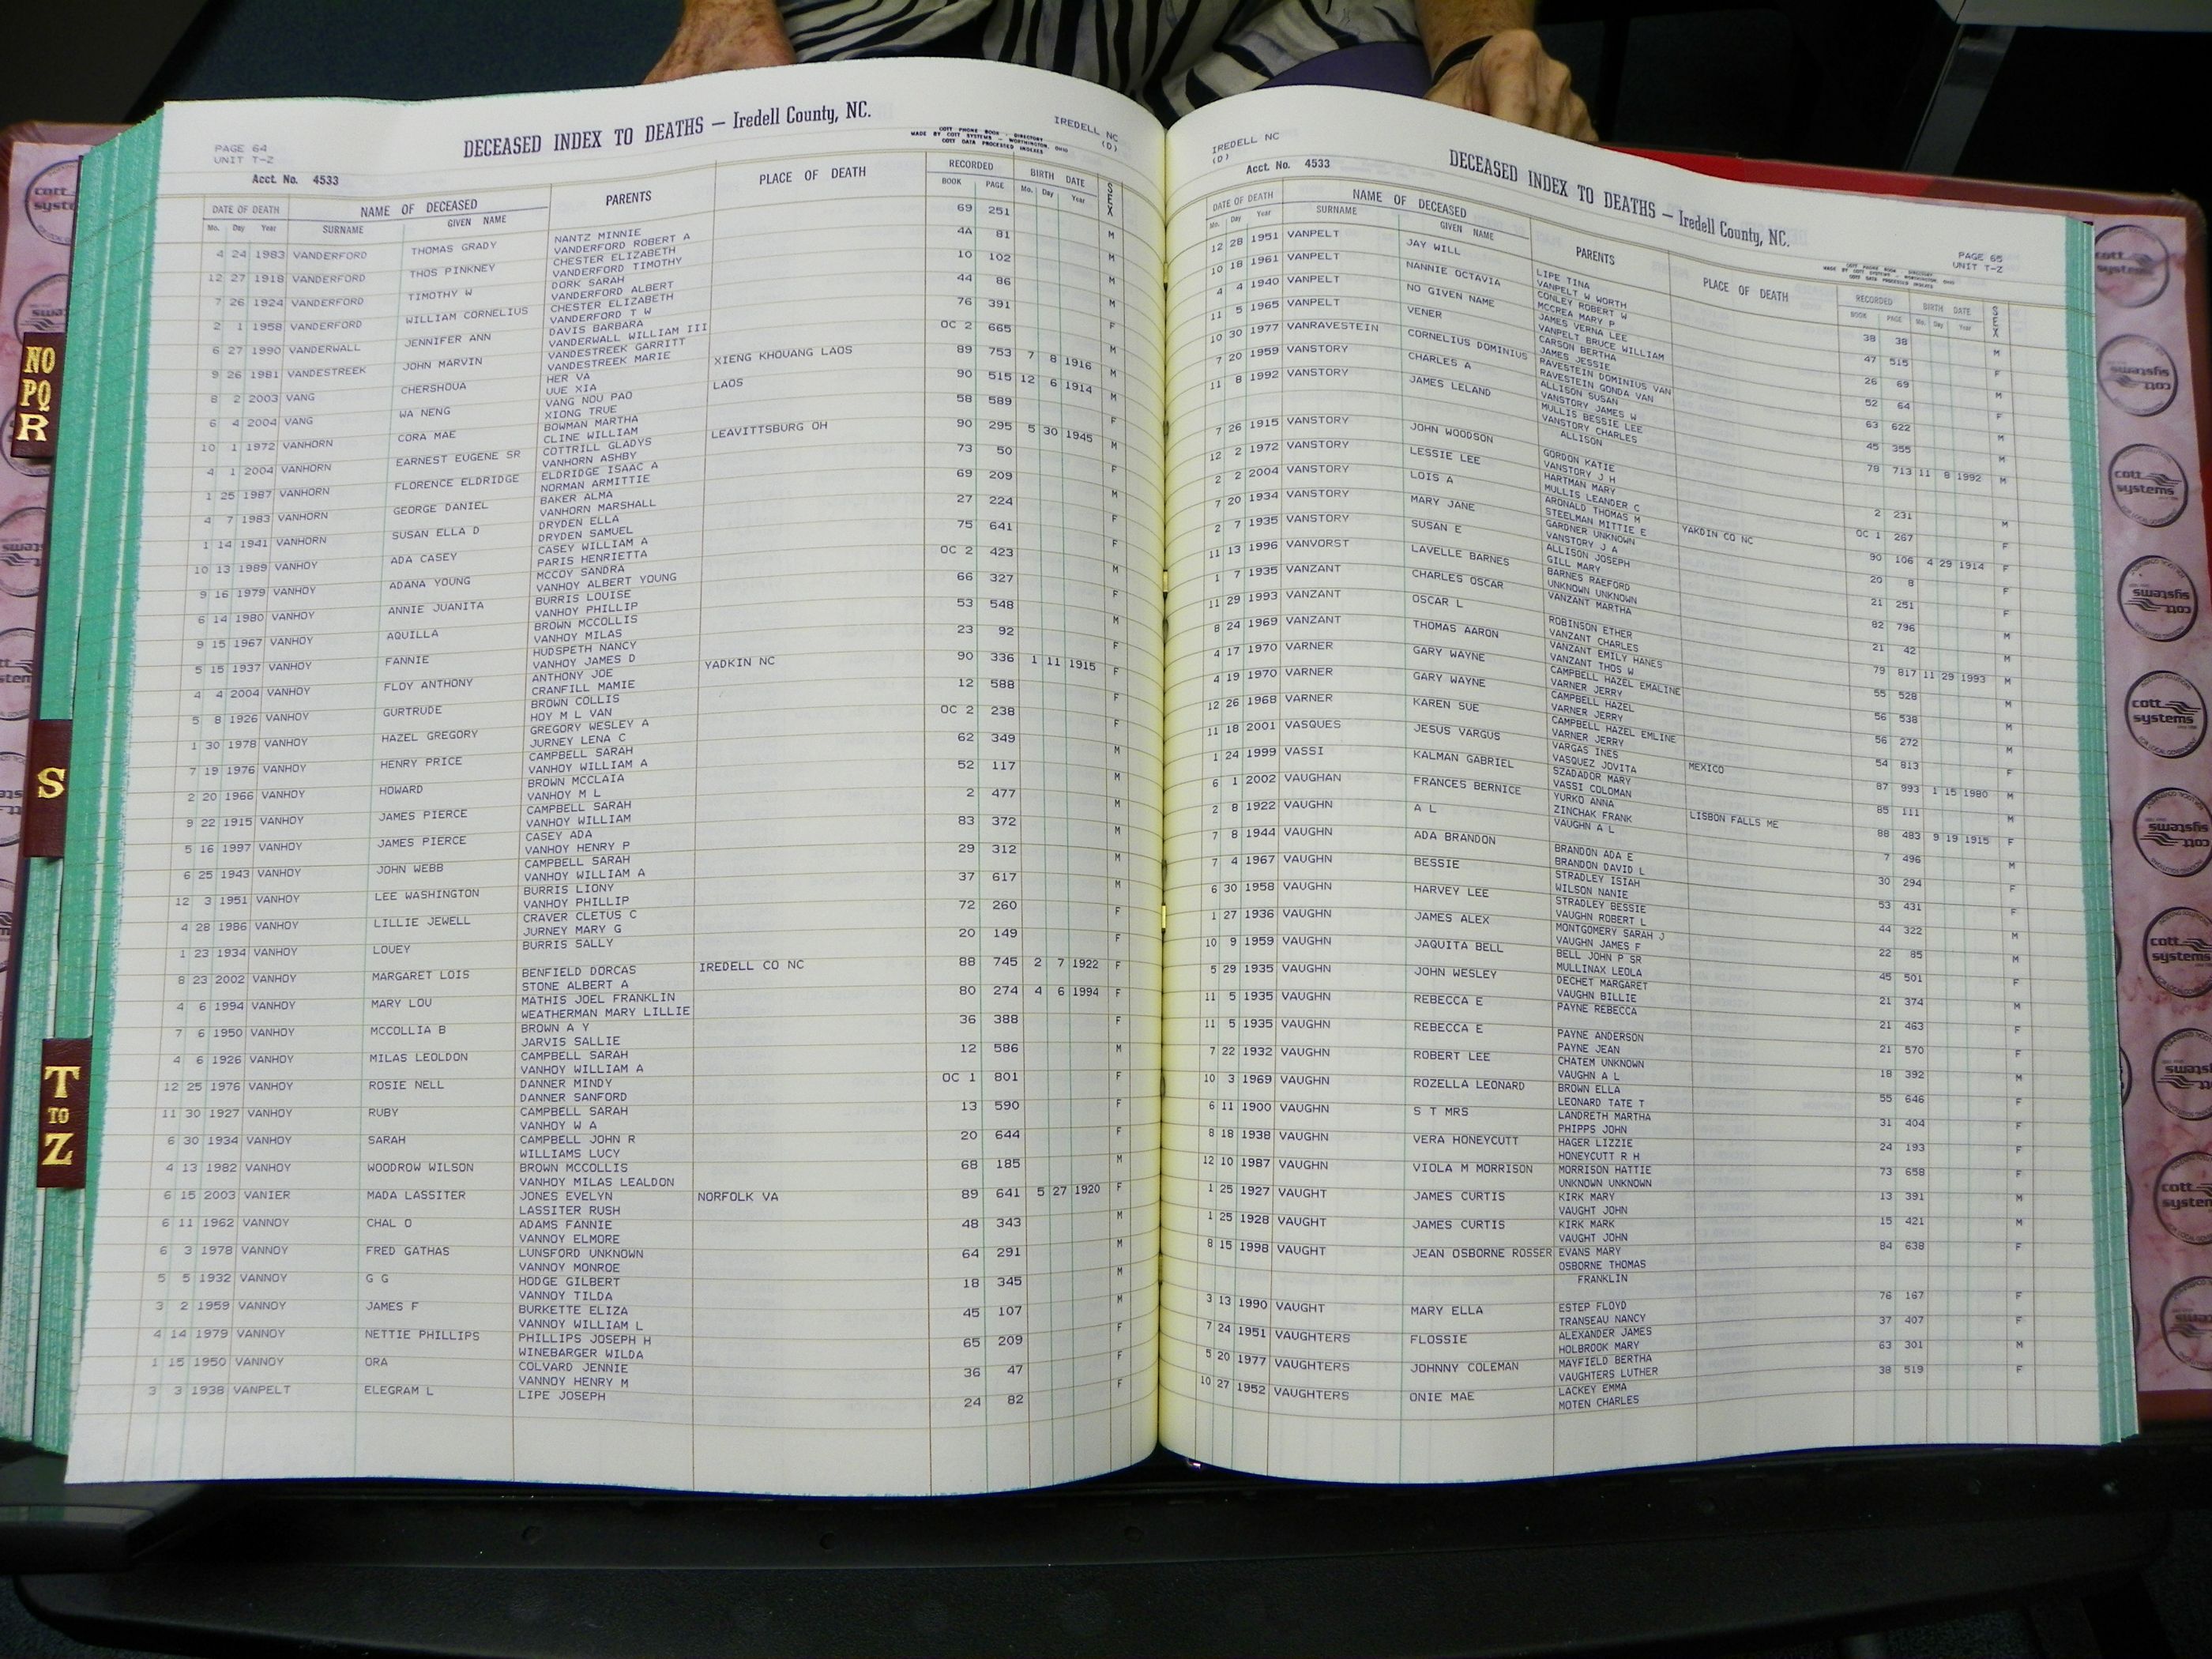 DECEASED INDEX TO DEATHS — Iredell County, NC.
IREDELL NC
(D)
COTT PHONE BOOK - DIRECTORY
MADE BY COTT SYSTEMS - WORTHINGTON, OHIO
COTT DATA PROCESSED INDEXES
PAGE 64
UNIT T-Z
Acct. No. 4533
DATE OF DEATH NAME OF DECEASED PARENTS PLACE OF DEATH RECORDED BIRTH DATE SEX
Mo. Day Year SURNAME GIVEN NAME BOOK PAGE Mo. Day Year
4 24 1983 VANDERFORD THOMAS GRADY NANTZ MINNIE 69 251 M
VANDERFORD ROBERT A
12 27 1918 VANDERFORD THOS PINKNEY CHESTER ELIZABETH 4A 81 M
VANDERFORD TIMOTHY
7 26 1924 VANDERFORD TIMOTHY W DORK SARAH 10 102 M
VANDERFORD ALBERT
2 1 1958 VANDERFORD WILLIAM CORNELIUS CHESTER ELIZABETH 44 86 M
VANDERFORD T W
6 27 1990 VANDERWALL JENNIFER ANN DAVIS BARBARA 76 391 F
VANDERWALL WILLIAM III
9 26 1981 VANDESTREEK JOHN MARVIN VANDESTREEK GARRITT OC 2 665 M
VANDESTREEK MARIE
8 2 2003 VANG CHERSHOUA HER VA XIENG KHOUANG LAOS 89 753 7 8 1916 M
UUE XIA
6 4 2004 VANG WA NENG VANG NOU PAO LAOS 90 515 12 6 1914 M
XIONG TRUE
10 1 1972 VANHORN CORA MAE BOWMAN MARTHA 58 589 F
CLINE WILLIAM
4 1 2004 VANHORN EARNEST EUGENE SR COTTRILL GLADYS LEAVITTSBURG OH 90 295 5 30 1945 M
VANHORN ASHBY
1 25 1987 VANHORN FLORENCE ELDRIDGE ELDRIDGE ISAAC A 73 50 F
NORMAN ARMITTIE
4 7 1983 VANHORN GEORGE DANIEL BAKER ALMA 69 209 M
VANHORN MARSHALL
1 14 1941 VANHORN SUSAN ELLA D DRYDEN ELLA 27 224 F
DRYDEN SAMUEL
10 13 1989 VANHOY ADA CASEY CASEY WILLIAM A 75 641 F
PARIS HENRIETTA
9 16 1979 VANHOY ADANA YOUNG MCCOY SANDRA OC 2 423 M
VANHOY ALBERT YOUNG
6 14 1980 VANHOY ANNIE JUANITA BURRIS LOUISE 66 327 F
VANHOY PHILLIP
9 15 1967 VANHOY AQUILLA BROWN MCCOLLIS 53 548 M
VANHOY MILAS
5 15 1937 VANHOY FANNIE HUDSPETH NANCY 23 92 F
VANHOY JAMES D
4 4 2004 VANHOY FLOY ANTHONY ANTHONY JOE YADKIN NC 90 336 1 11 1915 F
CRANFILL MAMIE
5 8 1926 VANHOY GURTRUDE BROWN COLLIS 12 588 F
HOY M L VAN
1 30 1978 VANHOY HAZEL GREGORY GREGORY WESLEY A OC 2 238 F
JURNEY LENA C
7 19 1976 VANHOY HENRY PRICE CAMPBELL SARAH 62 349 M
VANHOY WILLIAM A
2 20 1966 VANHOY HOWARD BROWN MCCLAIA 52 117 M
VANHOY M L
9 22 1915 VANHOY JAMES PIERCE CAMPBELL SARAH 2 477 M
VANHOY WILLIAM
5 16 1997 VANHOY JAMES PIERCE CASEY ADA 83 372 M
VANHOY HENRY P
6 25 1943 VANHOY JOHN WEBB CAMPBELL SARAH 29 312 M
VANHOY WILLIAM A
12 3 1951 VANHOY LEE WASHINGTON BURRIS LIONY 37 617 M
VANHOY PHILLIP
4 28 1986 VANHOY LILLIE JEWELL CRAVER CLETUS C 72 260 F
JURNEY MARY G
1 23 1934 VANHOY LOUEY BURRIS SALLY 20 149 F
8 23 2002 VANHOY MARGARET LOIS BENFIELD DORCAS IREDELL CO NC 88 745 2 7 1922 F
STONE ALBERT A
4 6 1994 VANHOY MARY LOU MATHIS JOEL FRANKLIN 80 274 4 6 1994 F
WEATHERMAN MARY LILLIE
7 6 1950 VANHOY MCCOLLIA B BROWN A Y 36 388 F
JARVIS SALLIE
4 6 1926 VANHOY MILAS LEOLDON CAMPBELL SARAH 12 586 M
VANHOY WILLIAM A
12 25 1976 VANHOY ROSIE NELL DANNER MINDY OC 1 801 F
DANNER SANFORD
11 30 1927 VANHOY RUBY CAMPBELL SARAH 13 590 F
VANHOY W A
6 30 1934 VANHOY SARAH CAMPBELL JOHN R 20 644 F
WILLIAMS LUCY
4 13 1982 VANHOY WOODROW WILSON BROWN MCCOLLIS 68 185 M
VANHOY MILAS LEALDON
6 15 2003 VANIER MADA LASSITER JONES EVELYN NORFOLK VA 89 641 5 27 1920 F
LASSITER RUSH
6 11 1962 VANNOY CHAL O ADAMS FANNIE 48 343 M
VANNOY ELMORE
6 3 1978 VANNOY FRED GATHAS LUNSFORD UNKNOWN 64 291 M
VANNOY MONROE
5 5 1932 VANNOY G G HODGE GILBERT 18 345 M
VANNOY TILDA
3 2 1959 VANNOY JAMES F BURKETTE ELIZA 45 107 M
VANNOY WILLIAM L
4 14 1979 VANNOY NETTIE PHILLIPS PHILLIPS JOSEPH H 65 209 F
WINEBARGER WILDA
1 15 1950 VANNOY ORA COLVARD JENNIE 36 47 F
VANNOY HENRY M
3 3 1938 VANPELT ELEGRAM L LIPE JOSEPH 24 82 F
IREDELL NC
(D)
DECEASED INDEX TO DEATHS — Iredell County, NC.
Acct. No. 4533
PAGE 65
UNIT T-Z
COTT PHONE BOOK - DIRECTORY
MADE BY COTT SYSTEMS - WORTHINGTON, OHIO
COTT DATA PROCESSED INDEXES
DATE OF DEATH NAME OF DECEASED PARENTS PLACE OF DEATH RECORDED BIRTH DATE SEX
Mo. Day Year SURNAME GIVEN NAME BOOK PAGE Mo. Day Year
12 28 1951 VANPELT JAY WILL LIPE TINA 38 38 M
VANPELT W WORTH
10 18 1961 VANPELT NANNIE OCTAVIA CONLEY ROBERT W 47 515 F
MCCREA MARY P
4 4 1940 VANPELT NO GIVEN NAME JAMES VERNA LEE 26 69 M
VANPELT BRUCE WILLIAM
11 5 1965 VANPELT VENER CARSON BERTHA 52 64 F
JAMES JESSIE
10 30 1977 VANRAVESTEIN CORNELIUS DOMINIUS RAVESTEIN DOMINIUS VAN 63 622 M
RAVESTEIN GONDA VAN
7 20 1959 VANSTORY CHARLES A ALLISON SUSAN 45 355 M
VANSTORY JAMES W
11 8 1992 VANSTORY JAMES LELAND MULLIS BESSIE LEE 78 713 11 8 1992 M
VANSTORY CHARLES
ALLISON
7 26 1915 VANSTORY JOHN WOODSON GORDON KATIE 2 231 M
VANSTORY J H
12 2 1972 VANSTORY LESSIE LEE HARTMAN MARY YAKDIN CO NC OC 1 267 F
MULLIS LEANDER C
2 2 2004 VANSTORY LOIS A ARONALD THOMAS M 90 106 4 29 1914 F
STEELMAN MITTIE E
7 20 1934 VANSTORY MARY JANE GARDNER UNKNOWN 20 8 F
VANSTORY J A
2 7 1935 VANSTORY SUSAN E ALLISON JOSEPH 21 251 F
GILL MARY
11 13 1996 VANVORST LAVELLE BARNES BARNES RAEFORD 82 796 M
UNKNOWN UNKNOWN
1 7 1935 VANZANT CHARLES OSCAR VANZANT MARTHA 21 42 M
11 29 1993 VANZANT OSCAR L ROBINSON ETHER 79 817 11 29 1993 M
VANZANT CHARLES
8 24 1969 VANZANT THOMAS AARON VANZANT EMILY HANES 55 528 M
VANZANT THOS W
4 17 1970 VARNER GARY WAYNE CAMPBELL HAZEL EMALINE 56 538 M
VARNER JERRY
4 19 1970 VARNER GARY WAYNE CAMPBELL HAZEL 56 272 M
VARNER JERRY
12 26 1968 VARNER KAREN SUE CAMPBELL HAZEL EMLINE 54 813 F
VARNER JERRY
11 18 2001 VASQUES JESUS VARGUS VARGAS INES MEXICO 87 993 1 15 1980 M
VASQUEZ JOVITA
1 24 1999 VASSI KALMAN GABRIEL SZADADOR MARY 85 111 M
VASSI COLOMAN
6 1 2002 VAUGHAN FRANCES BERNICE YURKO ANNA LISBON FALLS ME 88 483 9 19 1915 F
ZINCHAK FRANK
2 8 1922 VAUGHN A L VAUGHN A L 7 496 M
7 8 1944 VAUGHN ADA BRANDON BRANDON ADA E 30 294 F
BRANDON DAVID L
7 4 1967 VAUGHN BESSIE STRADLEY ISIAH 53 431 F
WILSON NANIE
6 30 1958 VAUGHN HARVEY LEE STRADLEY BESSIE 44 322 M
VAUGHN ROBERT L
1 27 1936 VAUGHN JAMES ALEX MONTGOMERY SARAH J 22 85 M
VAUGHN JAMES F
10 9 1959 VAUGHN JAQUITA BELL BELL JOHN P SR 45 501 F
MULLINAX LEOLA
5 29 1935 VAUGHN JOHN WESLEY DECHET MARGARET 21 374 M
VAUGHN BILLIE
11 5 1935 VAUGHN REBECCA E PAYNE REBECCA 21 463 F
11 5 1935 VAUGHN REBECCA E PAYNE ANDERSON 21 570 F
PAYNE JEAN
7 22 1932 VAUGHN ROBERT LEE CHATEM UNKNOWN 18 392 M
VAUGHN A L
10 3 1969 VAUGHN ROZELLA LEONARD BROWN ELLA 55 646 F
LEONARD TATE T
6 11 1900 VAUGHN S T MRS LANDRETH MARTHA 31 404 F
PHIPPS JOHN
8 18 1938 VAUGHN VERA HONEYCUTT HAGER LIZZIE 24 193 F
HONEYCUTT R H
12 10 1987 VAUGHN VIOLA M MORRISON MORRISON HATTIE 73 658 F
UNKNOWN UNKNOWN
1 25 1927 VAUGHT JAMES CURTIS KIRK MARY 13 391 M
VAUGHT JOHN
1 25 1928 VAUGHT JAMES CURTIS KIRK MARK 15 421 M
VAUGHT JOHN
8 15 1998 VAUGHT JEAN OSBORNE ROSSER EVANS MARY 84 638 F
OSBORNE THOMAS
FRANKLIN
3 13 1990 VAUGHT MARY ELLA ESTEP FLOYD 76 167 F
TRANSEAU NANCY
7 24 1951 VAUGHTERS FLOSSIE ALEXANDER JAMES 37 407 F
HOLBROOK MARY
5 20 1977 VAUGHTERS JOHNNY COLEMAN MAYFIELD BERTHA 63 301 M
VAUGHTERS LUTHER
10 27 1952 VAUGHTERS ONIE MAE LACKEY EMMA 38 519 F
MOTEN CHARLES
NO
PQ
R
S
T
TO
Z
cott
systems